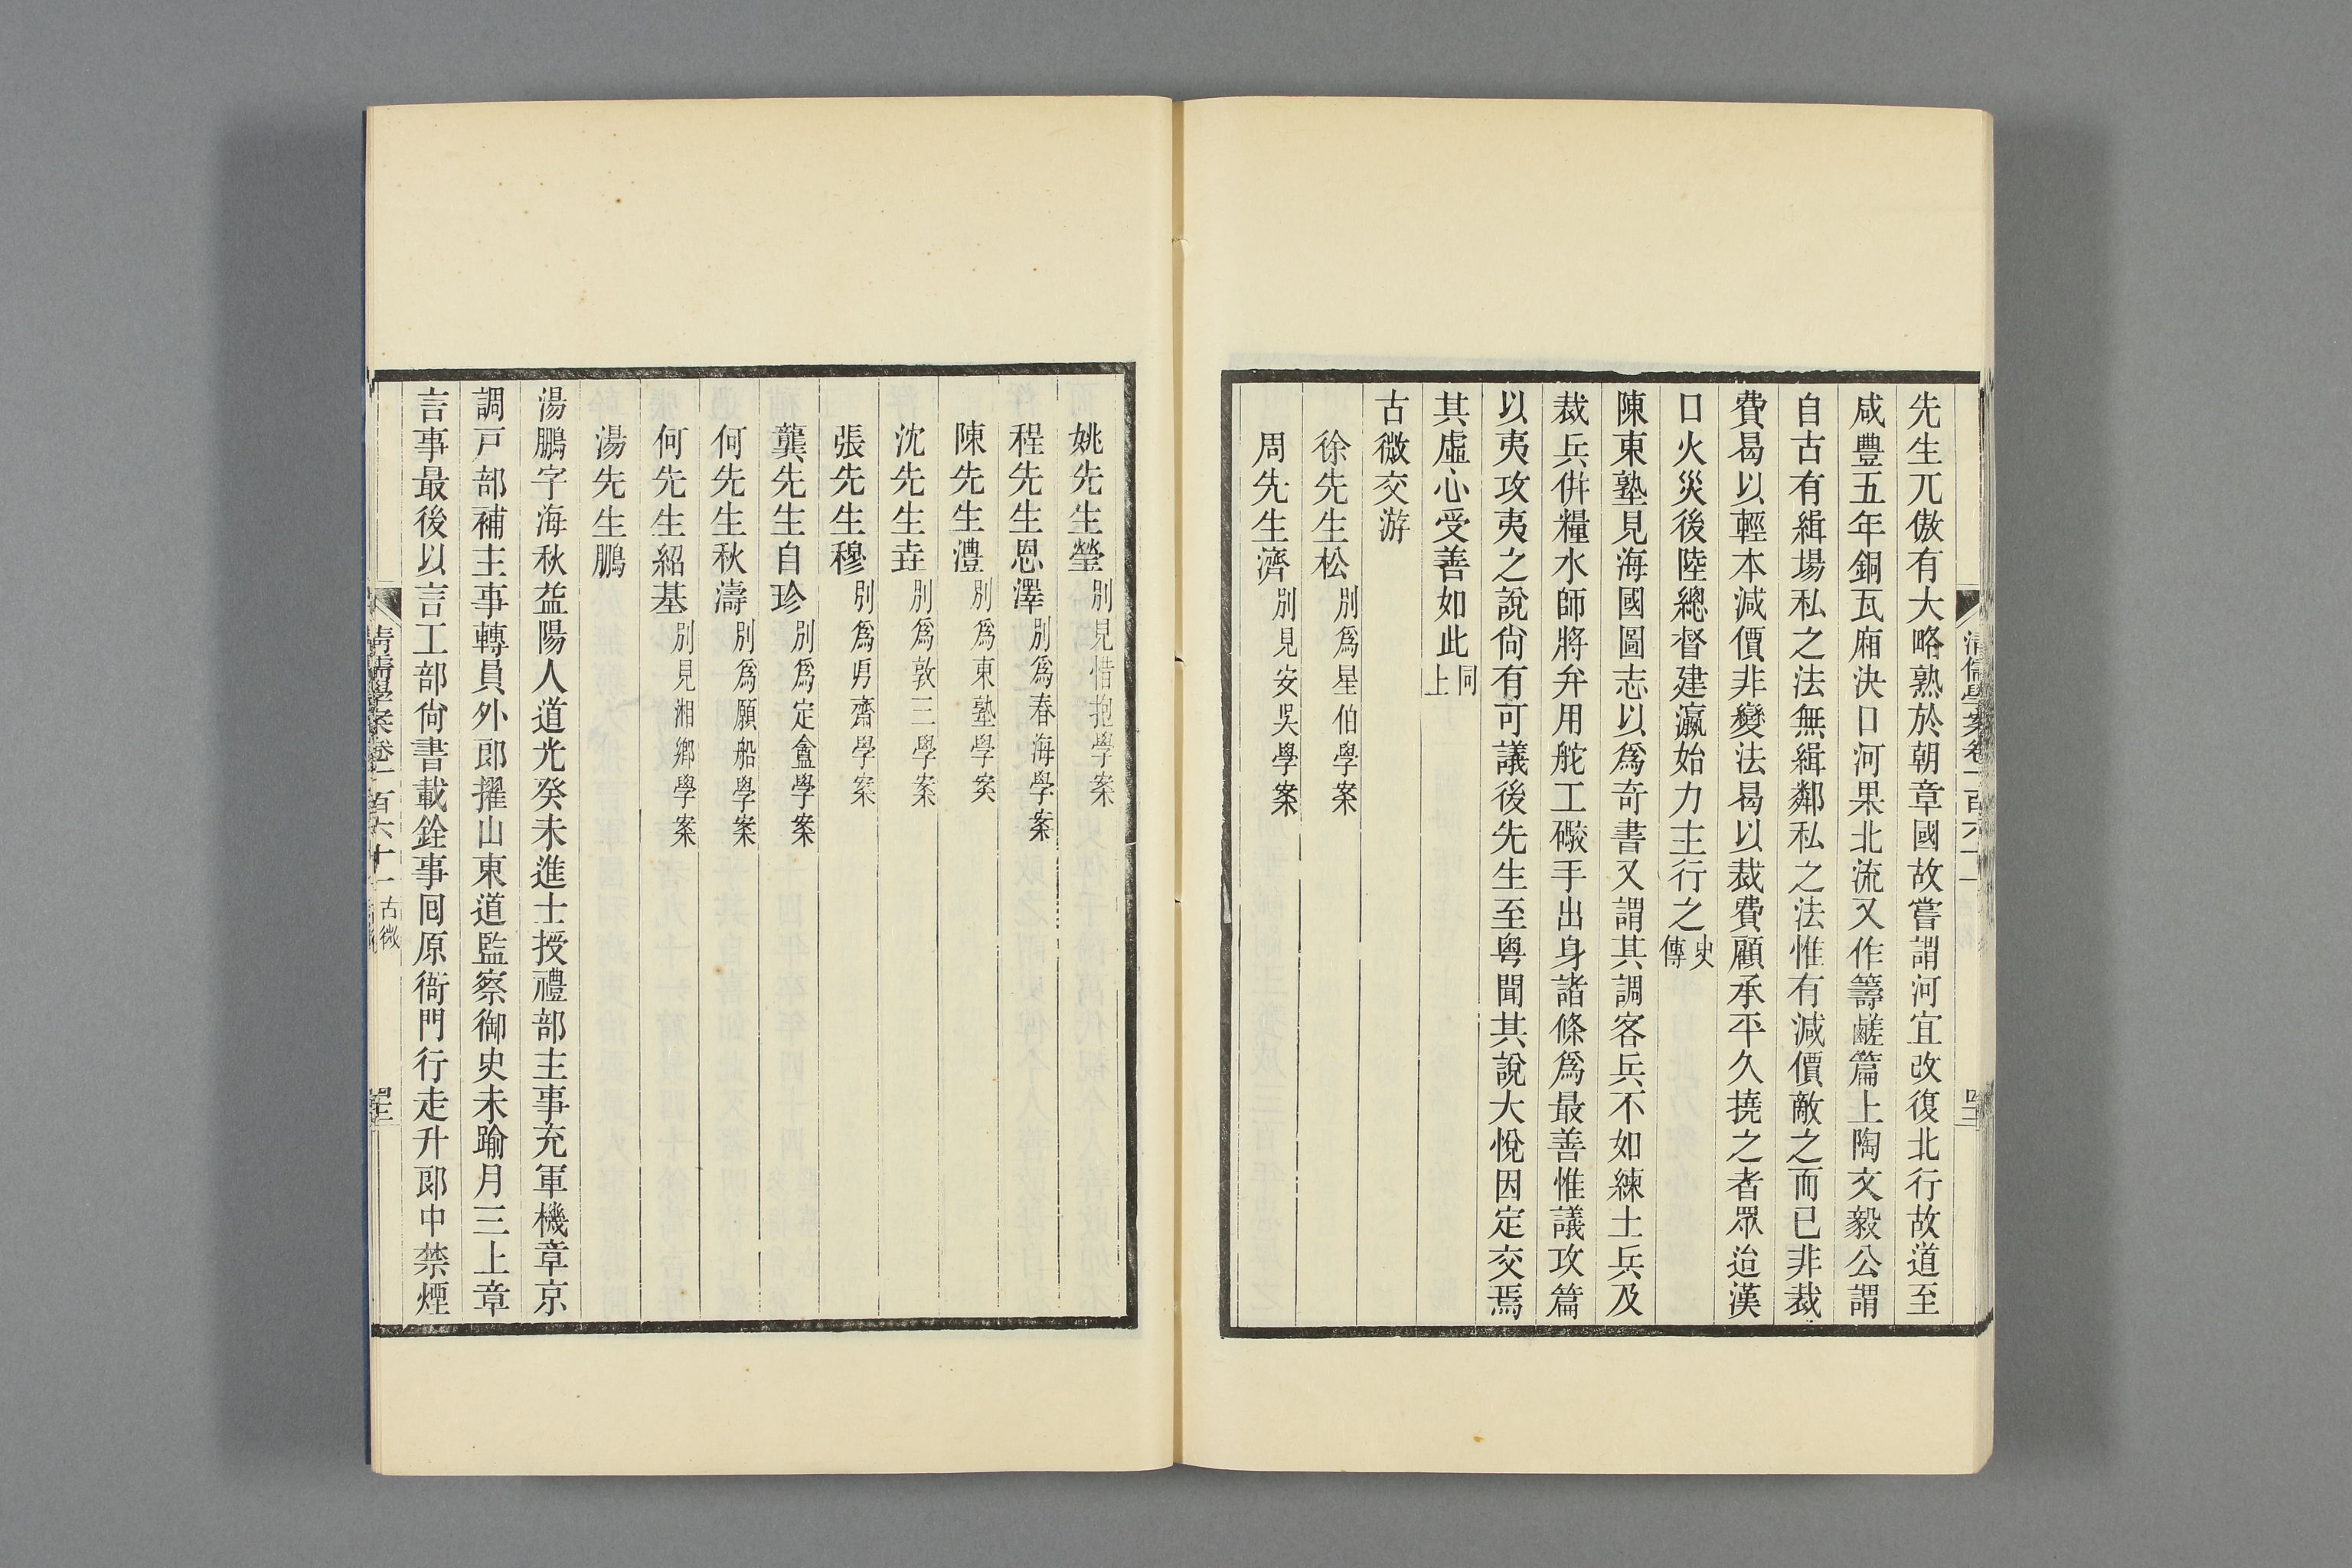 先生兀傲有大略熟於朝章國故嘗謂河宜改復北行故道至
咸豐五年銅瓦廂決口河果北流又作籌鹺篇上陶文毅公謂
自古有緝場私之法無緝鄰私之法惟有減價敵之而已非裁
費曷以輕本減價非變法曷以裁費顧承平久撓之者眾迨漢
口火災後陸總督建瀛始力主行之史傳
陳東塾見海國圖志以爲奇書又謂其調客兵不如練土兵及
裁兵倂糧水師將弁用舵工礮手出身諸條爲最善惟議攻篇
以夷攻夷之說尙有可議後先生至粵聞其說大悅因定交焉
其虛心受善如此同上
古微交游
徐先生松別爲星伯學案
周先生濟別見安吳學案
清儒學案卷一百六十一
姚先生瑩別見惜抱學案
程先生恩澤別爲春海學案
陳先生澧別爲東塾學案
沈先生垚別爲敦三學案
張先生穆別爲㐆齋學案
龔先生自珍別爲定盦學案
何先生秋濤別爲願船學案
何先生紹基別見湘鄉學案
湯先生鵬
湯鵬字海秋益陽人道光癸未進士授禮部主事充軍機章京
調戸部補主事轉員外郎擢山東道監察御史未踰月三上章
言事最後以言工部尙書載銓事囘原衙門行走升郎中禁煙
清儒學案卷一百六十一 古微